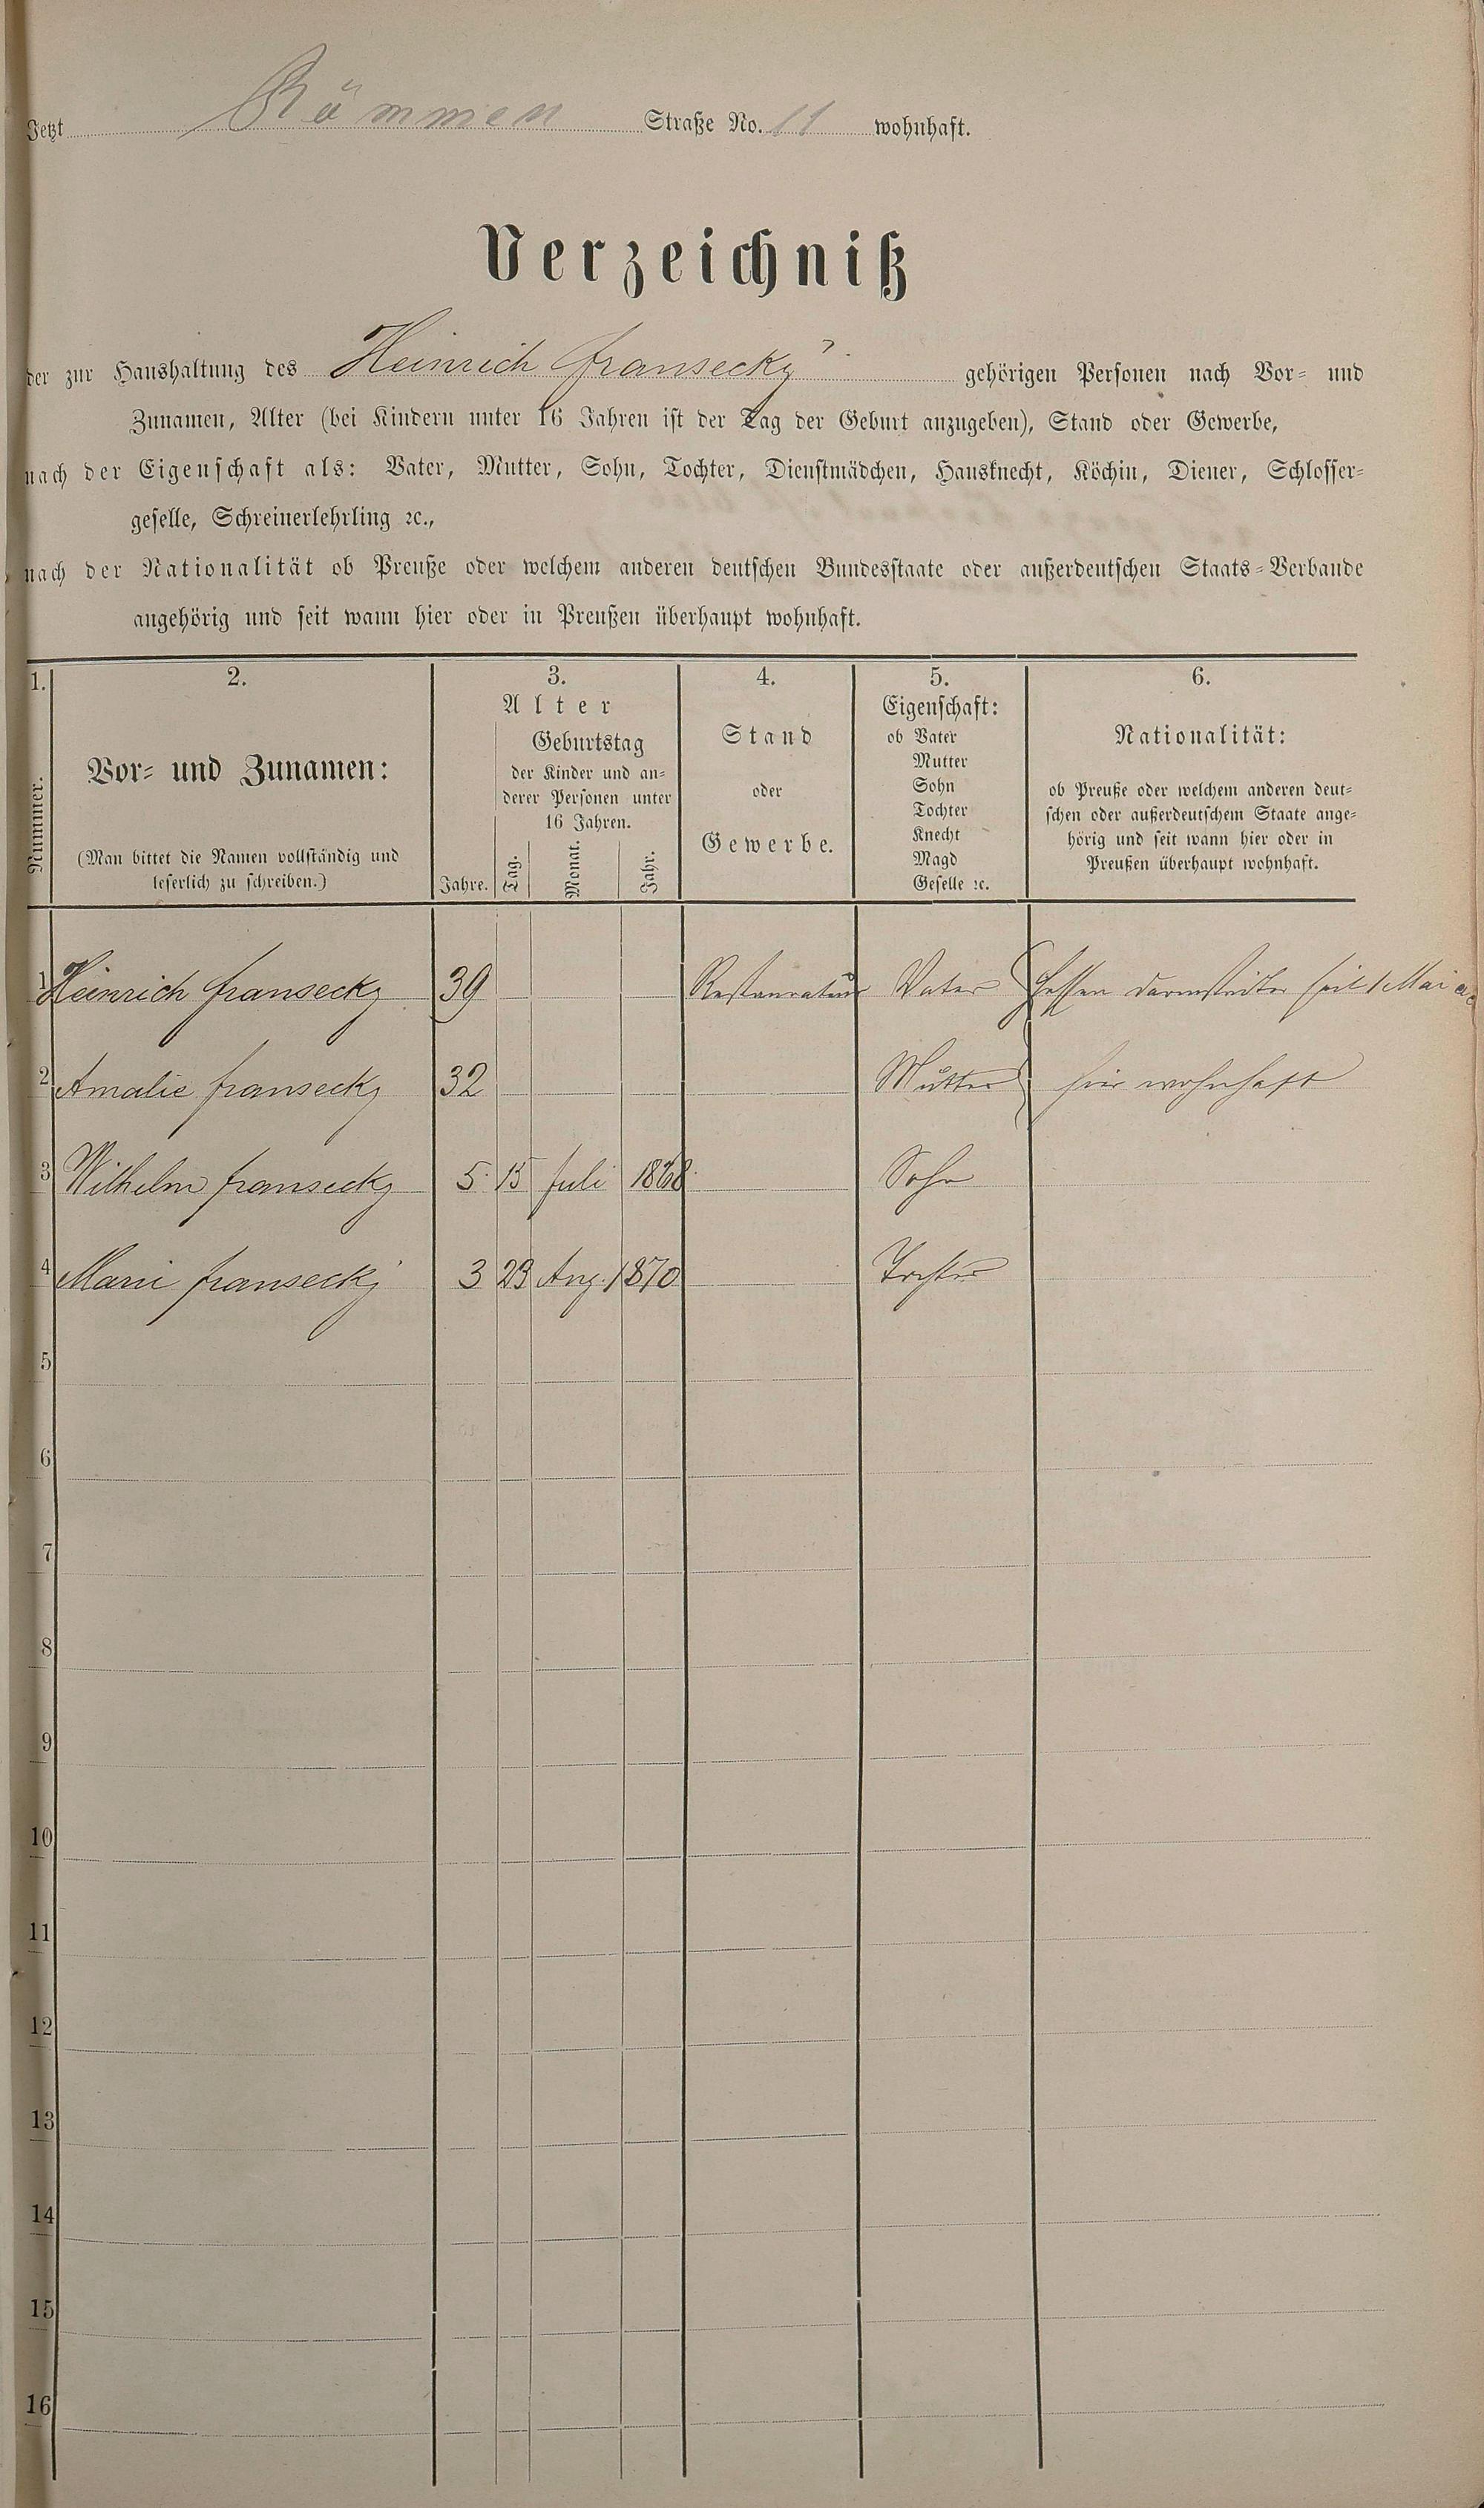 Jetzt Römmen Straße No. 11 wohnhaft.
Verzeichniß
der zur Haushaltung des Heinrich Fransecky gehörigen Personen nach Vor- und
Zunamen, Alter (bei Kindern unter 16 Jahren ist der Tag der Geburt anzugeben), Stand oder Gewerbe,
nach der Eigenschaft als: Vater, Mutter, Sohn, Tochter, Dienstmädchen, Hausknecht, Köchin, Diener, Schlosser-
geselle, Schreinerlehrling ꝛc.,
nach der Nationalität ob Preuße oder welchem anderen deutschen Bundesstaate oder außerdeutschen Staats-Verbande
angehörig und seit wann hier oder in Preußen überhaupt wohnhaft.
1. 2. 3. 4. 5. 6.
Nummer.
Vor- und Zunamen:
(Man bittet die Namen vollständig und
leserlich zu schreiben.)
Alter
Jahre.
Geburtstag
der Kinder und an-
derer Personen unter
16 Jahren.
Tag. Monat. Jahr.
Stand
oder
Gewerbe.
Eigenschaft:
ob Vater
Mutter
Sohn
Tochter
Knecht
Magd
Geselle ꝛc.
Nationalität:
ob Preuße oder welchem anderen deut-
schen oder außerdeutschem Staate ange-
hörig und seit wann hier oder in
Preußen überhaupt wohnhaft.
1 Heinrich Fransecky 39 Restaurateur Vater Hessen darmstädter seit 1 Mai ac
2 Amalie Fransecky 32 Mutter hier wohnhaft
3 Wilhelm Fransecky 5 15 Juli 1868 Sohn
4 Marie Fransecky 3 23 Aug. 1870 Tochter
5
6
7
8
9
10
11
12
13
14
15
16